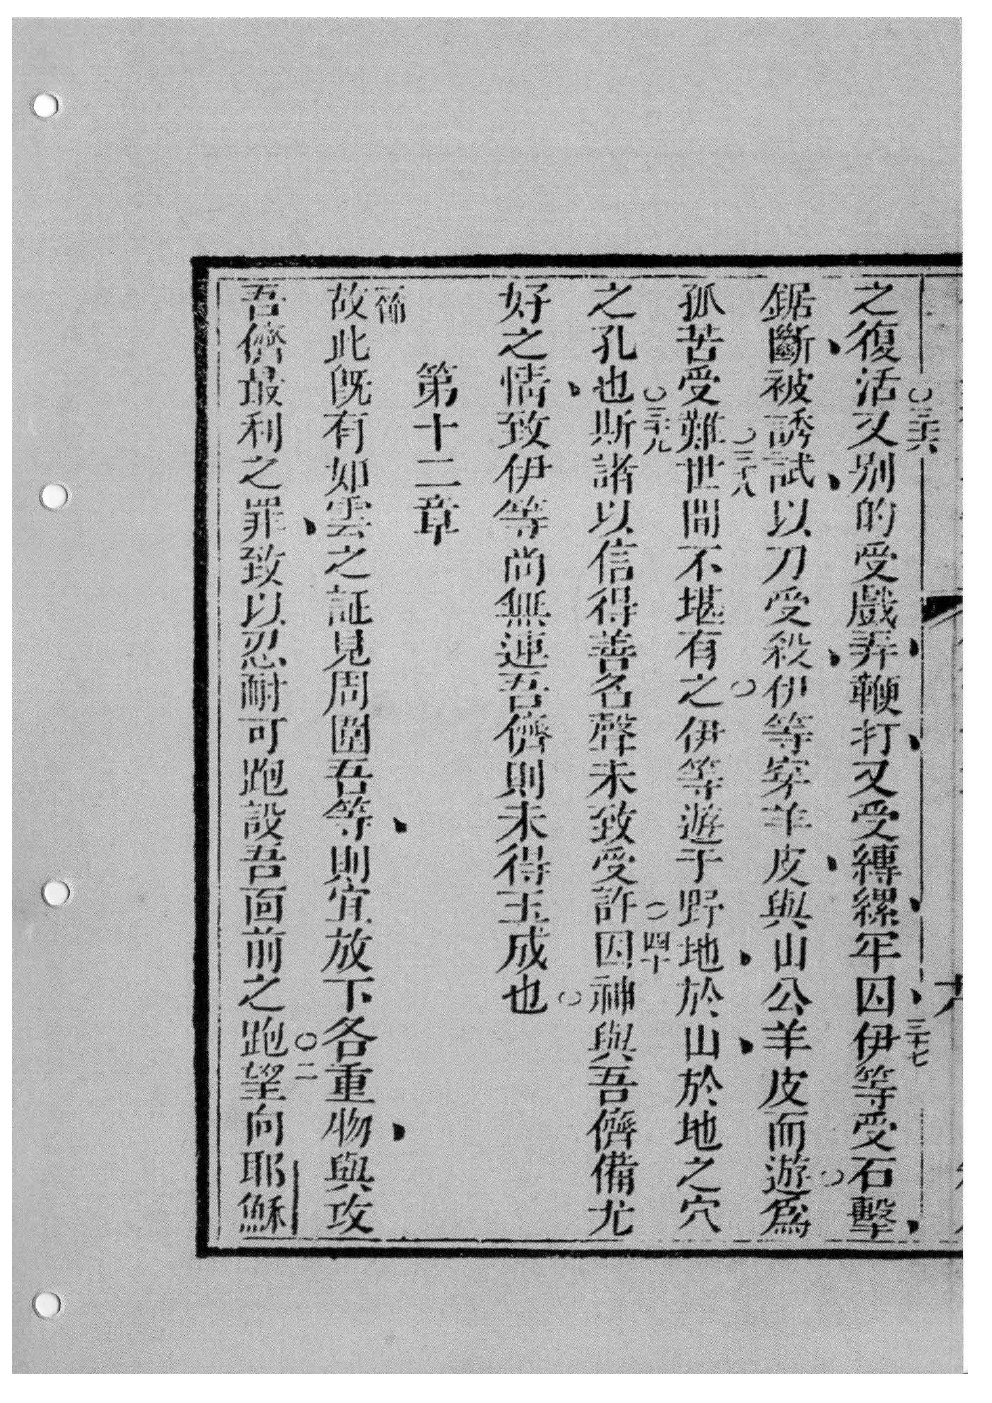 之復活又别的受戲弄鞭打又受縛縲牢囚三十七伊等受石擊
三十六
鋸斷被誘試以刀受殺伊等穿羊皮與山公羊皮而遊爲
孤苦受難三十八世間不堪有之伊等遊于野地於山於地之穴
之孔也三十九斯諸以信得善名聲未致受許因四十神與吾儕備尤
好之情致伊等尚無連吾儕則未得玉成也
第十二章
一節
故此既有如雲之証見周圍吾等則宜放下各重物與攻
吾儕最利之罪致以忍耐可跑設吾面前之跑二望向耶穌